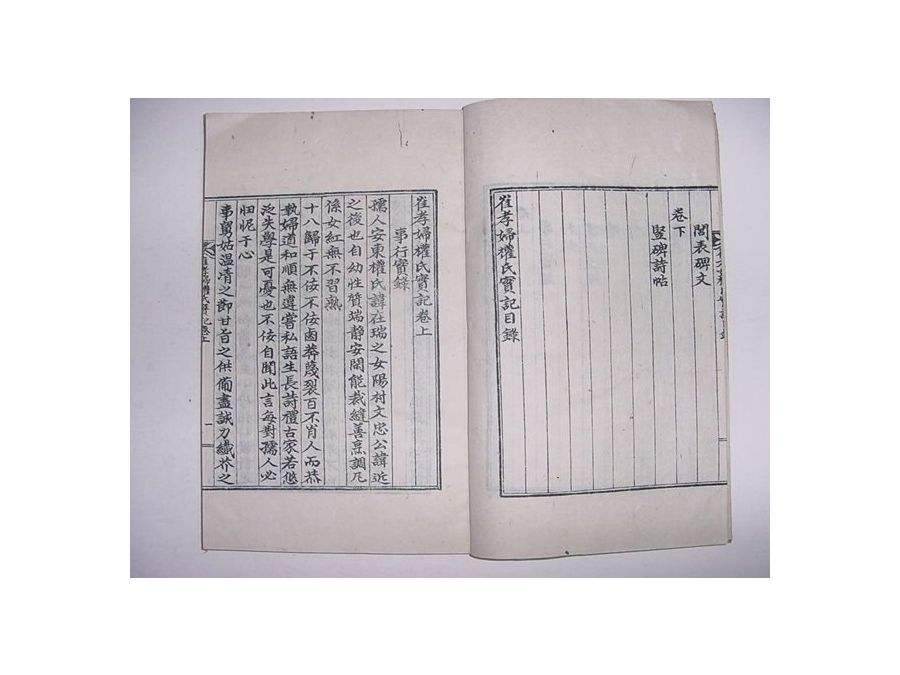 閤表碑文
卷下
竪碑詩帖
崔孝婦權氏實記目錄
崔孝婦權氏實記卷上
事行實錄
孺人安東權氏諱在瑞之女陽村文忠公諱近
之後也自幼性質端靜安閑能裁縫善烹調凡
係女紅無不習熟
十八歸于不佞不佞鹵莽蔑裂百不肖人而恭
執婦道和順無違嘗私語生長詩禮古家若悠
泛失學是可憂也不佞自聞此言每對孺人必
忸怩于心
事舅姑溫凊之節甘旨之供備盡誠力纖芥之
崔孝婦權氏實記卷上 一